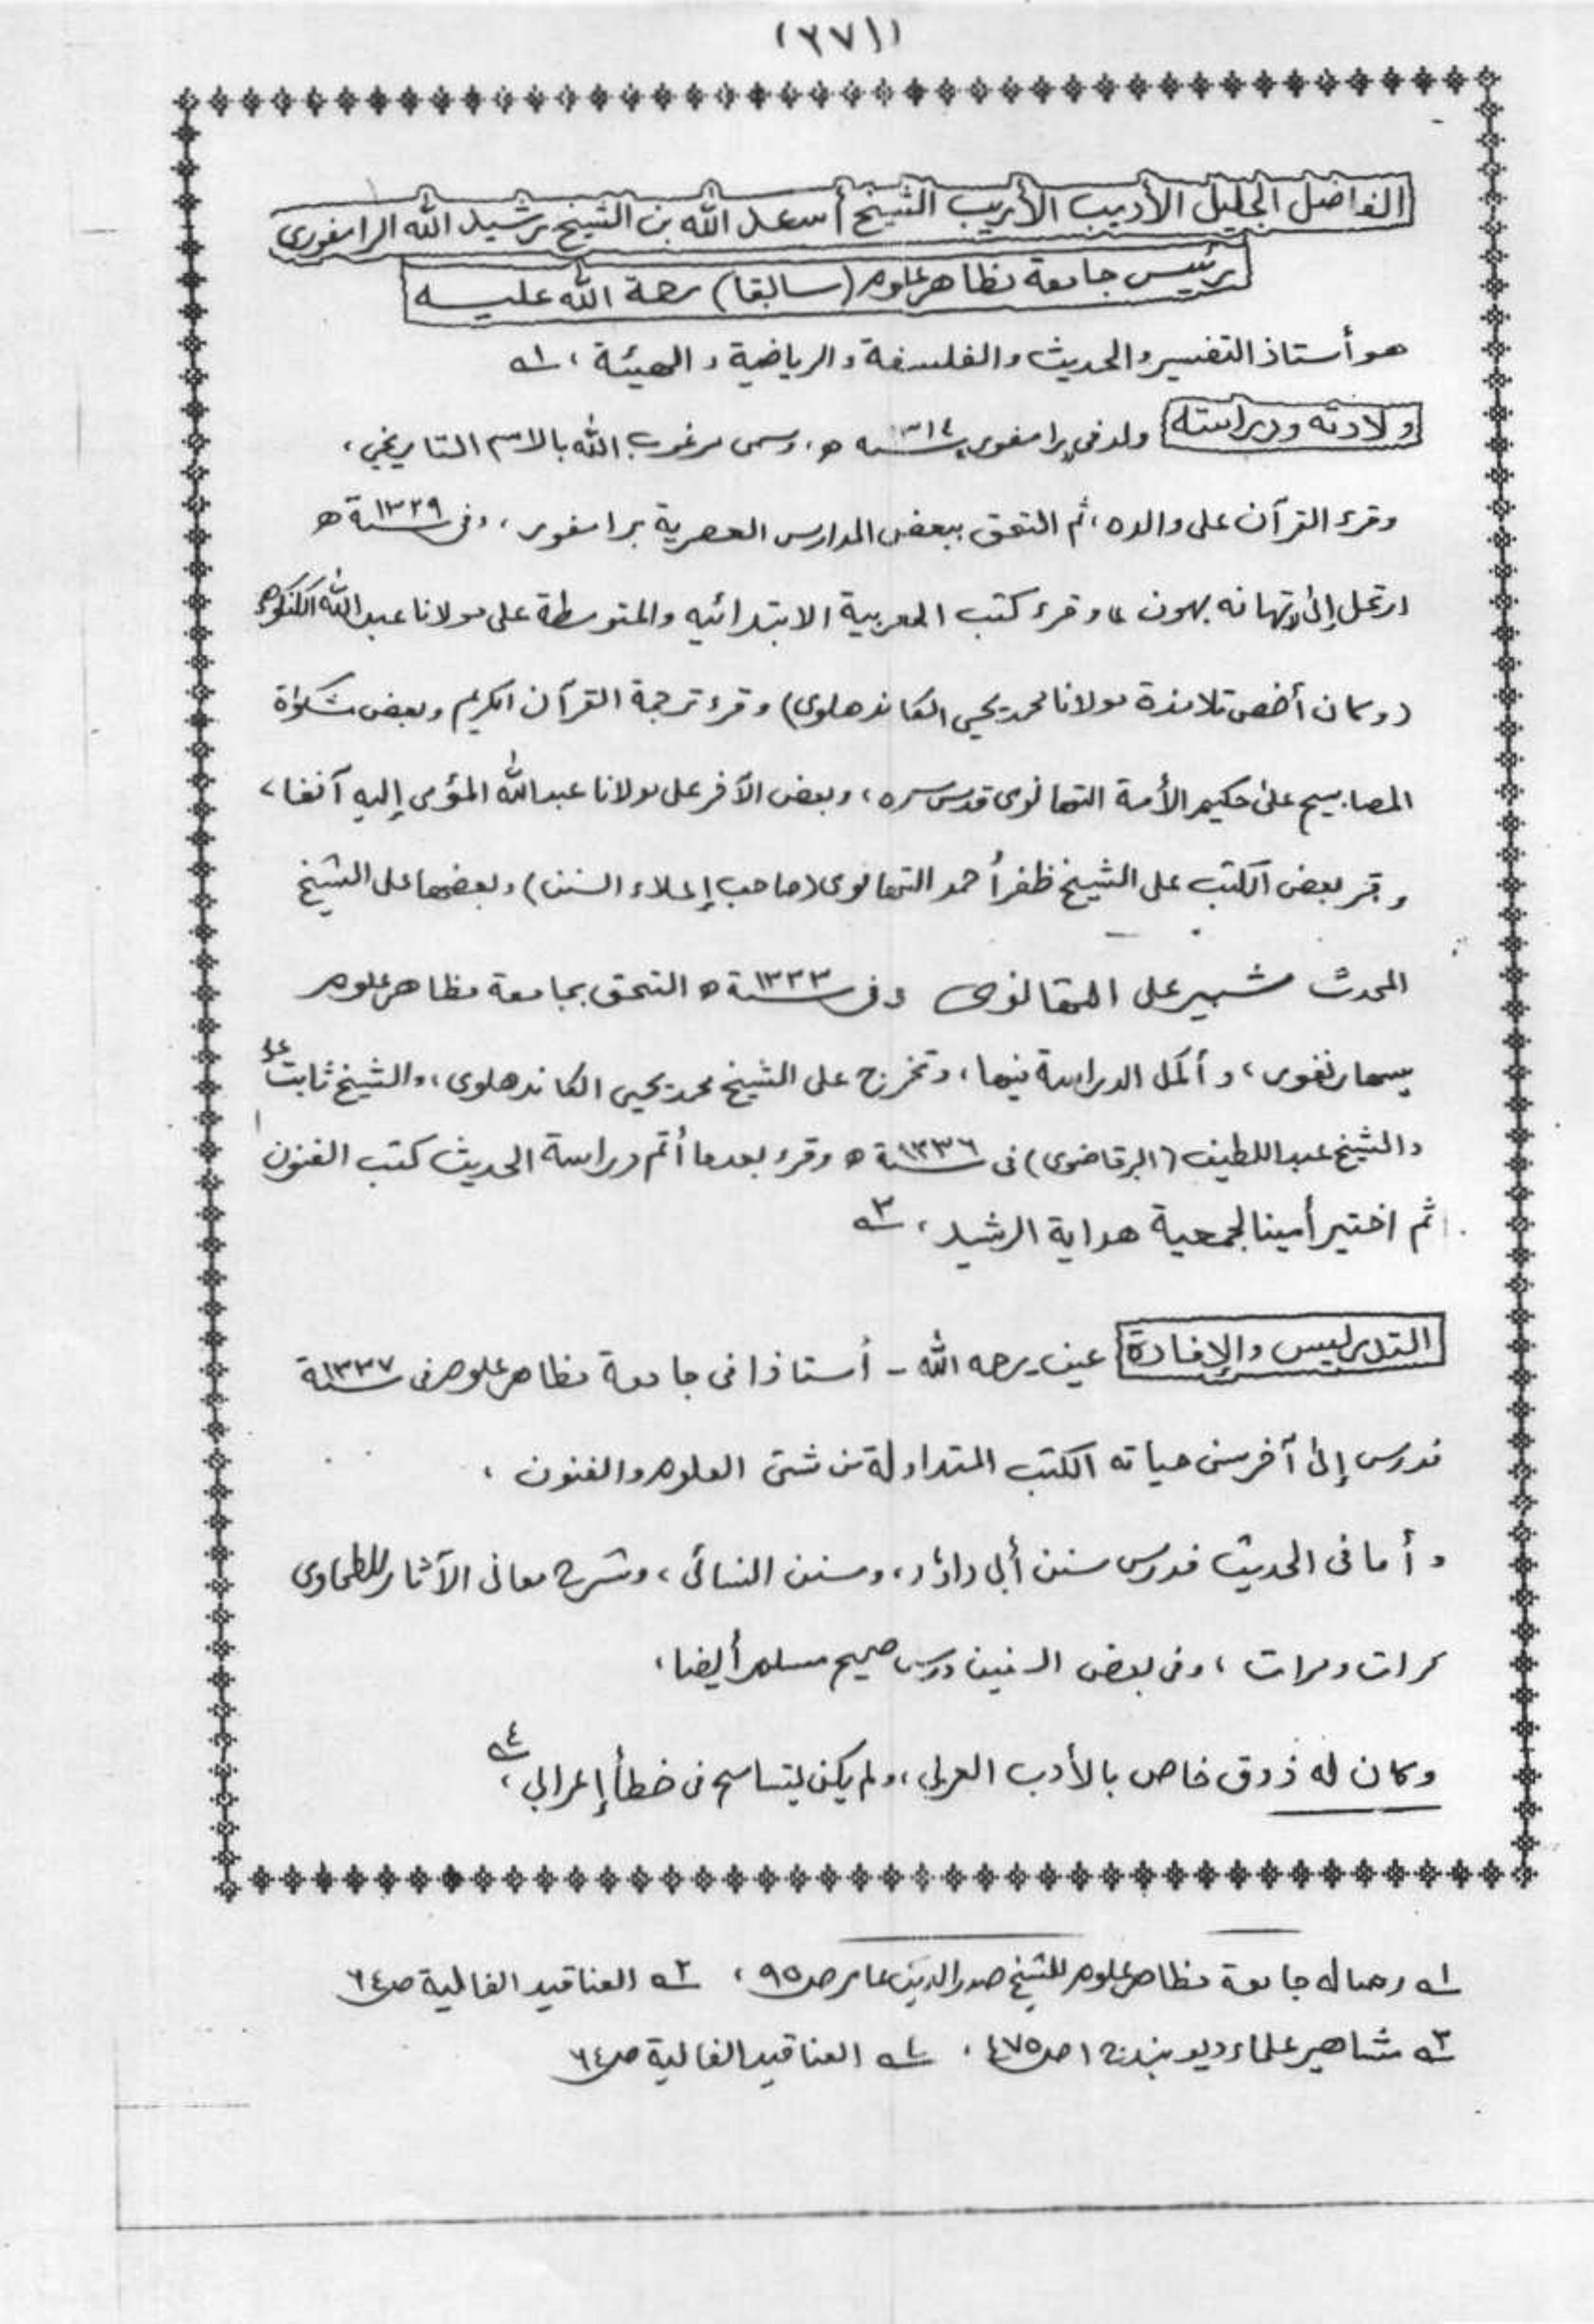 (٢٧١)
الفاضل الجليل الأديب الأريب الشيخ أسعد الله بن الشيخ رشيد الله الرامفوري
رئيس جامعة مظاهر علوم (سابقا) رحمة الله عليه
هو أستاذ التفسير والحديث والفلسفة والرياضية والهيئة، ١ـه
ولادته ودراسته ولد في رامفور ١٣١٤سـنه ھ، وسمى مرغوب الله بالاسم التاريخي،
وقرء القرآن على والده، ثم التحق ببعض المدارس العصرية برامفور، وفى ١٣٢٩سـنة ھ
ارتحل إلى تهانه بهون، وقرء كتب العربية الابتدائيه والمتوسطة على مولانا عبد الله الكنكوهى
(وكان أخص تلامذة مولانا محمد يحيى الكاندهلوى) وقرء ترجمة القرآن الكريم وبعض مشكواة
المصابيح على حكيم الأمة التهانوى قدس سره، وبعض الآخر على مولانا عبد الله المؤمى إليه آنفا،
وقرء بعض الكتب على الشيخ ظفر أحمد التهانوى (صاحب إعلاء السنن) وبعضها على الشيخ
المحدث شبير على التهانوى وفى ١٣٣٣سـنة ھ التحق بجامعة مظاهر علوم
بسهارنفور، وأكمل الدراسة فيها، وتخرج على الشيخ محمد يحيى الكاندهلوى، والشيخ ثابت على
والشيخ عبد اللطيف (البرقاضوى) فى ١٣٣٦سـنة ھ وقرء بعدما أتم دراسة الحديث كتب الفنون
ثم اختير أمينا لجمعية هداية الرشيد، ٣ـه
التدريس والإفادة عين رحمه الله - أستاذا فى جامعة مظاهر علوم فى ١٣٣٧سـنة
فدرس إلى آخر سنى حياته الكتب المتداولة من شتى العلوم والفنون،
وأما فى الحديث فدرس سنن أبى داؤد، وسنن النسائى، وشرح معانى الآثار للطحاوى
كرات ومرات، وفى بعض السنين درس صحيح مسلم أيضا،
وكان له ذوق خاص بالأدب العربى، ولم يكن ليتسامح فى خطأ إعرابى، ٤ـه
١ـه رساله جامعة مظاهر علوم للشيخ صدر الدين عامر صـ٩٥، ٢ـه العناقيد الغالية صـ٦٤
٣ـه مشاهير علماء ديوبند ج١ صـ٤٧٥، ٤ـه العناقيد الغالية صـ٦٤